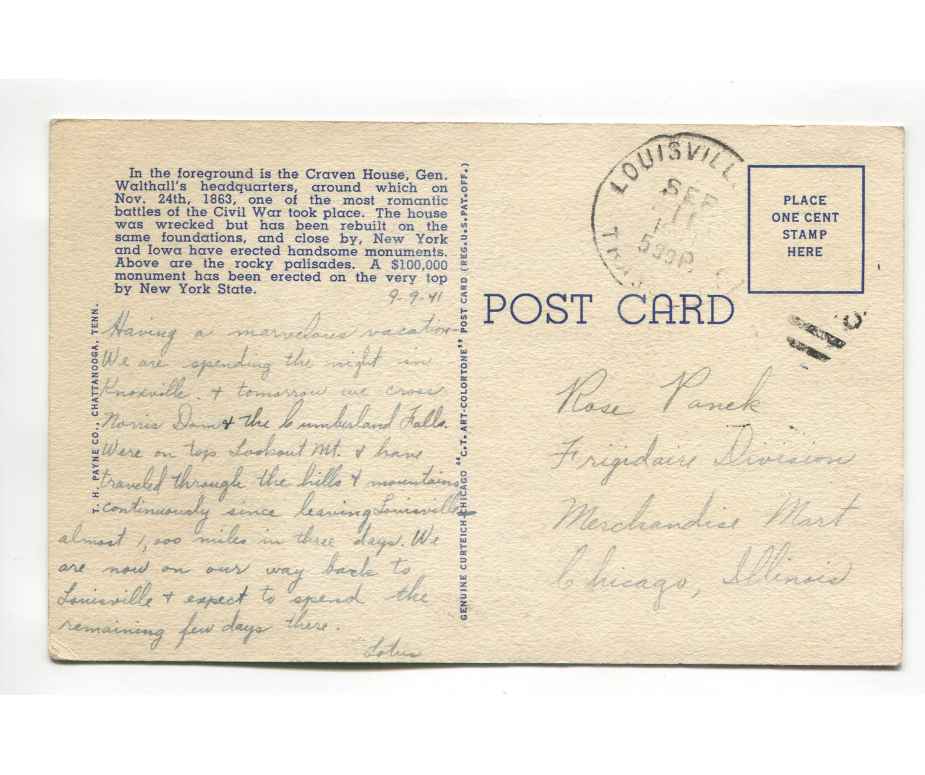 In the foreground is the Craven House, Gen.
Walthall's headquarters, around which on
Nov. 24th, 1863, one of the most romantic
battles of the Civil War took place. The house
was wrecked but has been rebuilt on the
same foundations, and close by, New York
and Iowa have erected handsome monuments.
Above are the rocky palisades. A $100,000
monument has been erected on the very top
by New York State.
9-9-41
Having a marvelous vacation.
We are spending the night in
Knoxville & tomorrow we cross
Norris Dam & the Cumberland Falls.
Were on top Lookout Mt. & have
traveled through the hills & mountains
continuously since leaving Louisville
almost 1,000 miles in three days. We
are now on our way back to
Louisville & expect to spend the
remaining few days there.
T. H. PAYNE CO., CHATTANOOGA, TENN.
GENUINE CURTEICH-CHICAGO "C.T. ART-COLORTONE" POST CARD (REG. U.S. PAT. OFF.)
LOUISVILL
SEP
11
530P
POST CARD
PLACE
ONE CENT
STAMP
HERE
Rose Panek
Frigidaire Division
Merchandise Mart
Chicago, Illinois